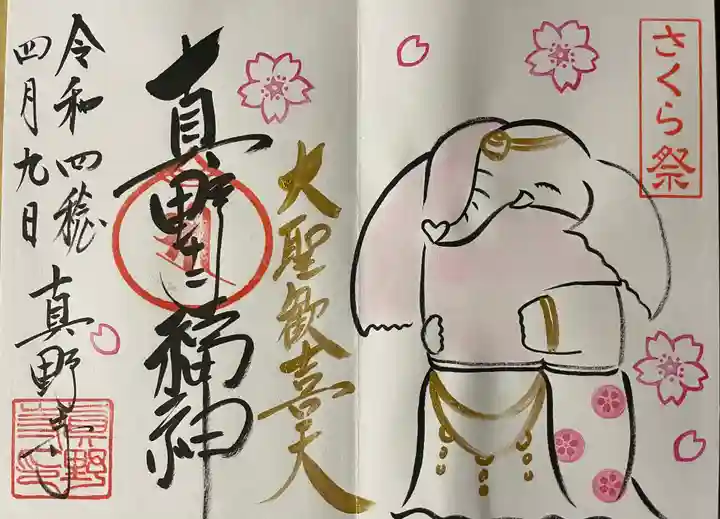 さくら祭
大聖歓喜天
真野三福神
令和四稔
四月九日
真野寺